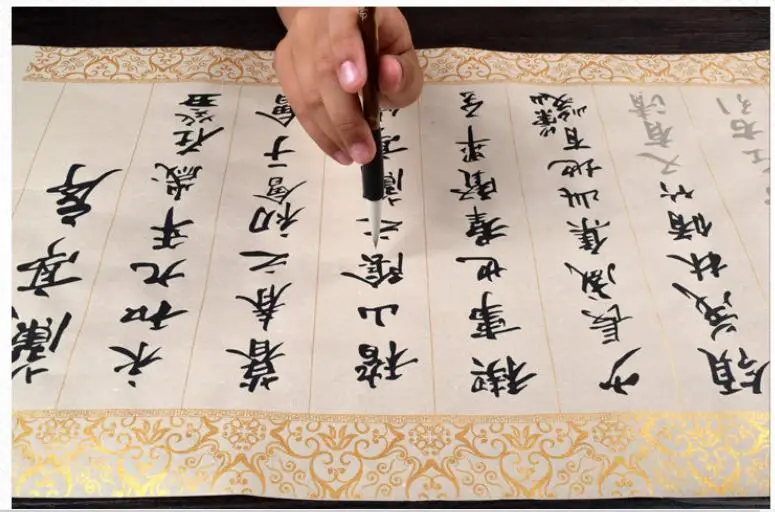 蘭亭序
永和九年歲在癸丑
暮春之初會于會
稽山陰之蘭
禊事也羣賢畢至
少長咸集此地有
領茂林脩竹又有清
左右引